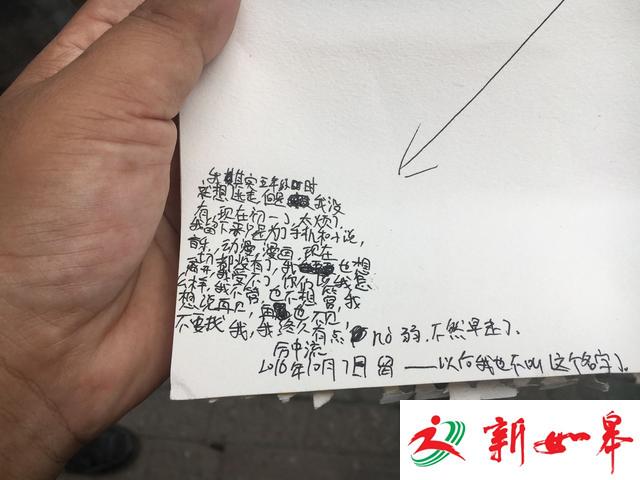 我其实五年级时
来想逃走,但是我没
有,现在初一了,太烦了,
我留下来只是为了手机和小说,
音乐,动漫,漫画,现在
一切都没有了,我也想
离开,我管不了你们
么样,我不管,也不想管,我
想说再见,再也不见,
不要找我,我终究有点no弱,不然早走了。
历中流
2016年10月7日留 ——以后我也不叫这个名字了。
新如皋